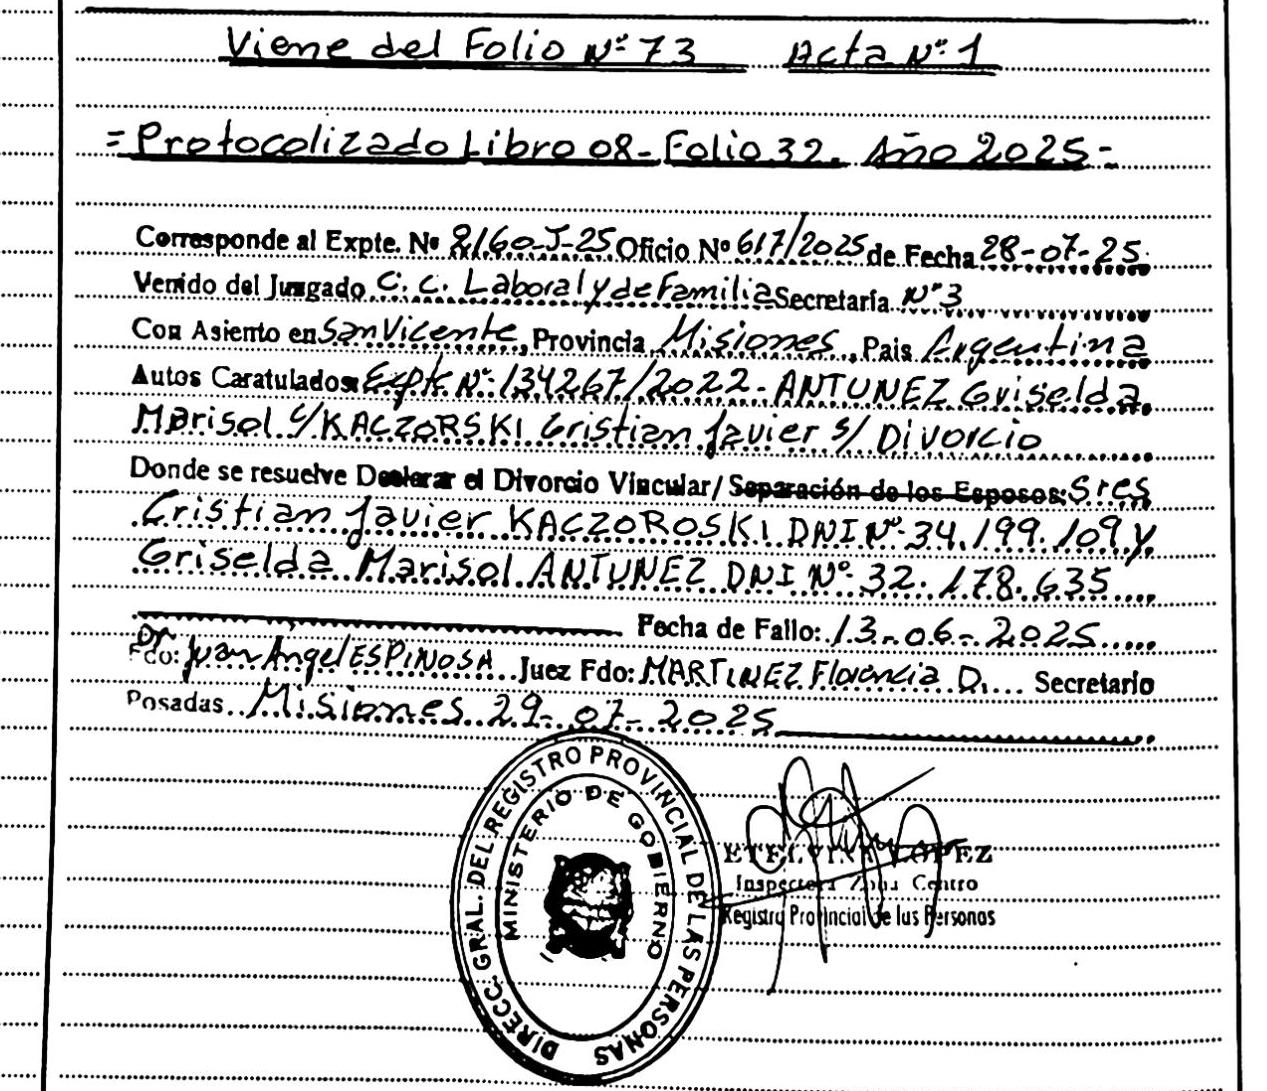 Viene del Folio Nº 73 Acta Nº 1
= Protocolizado Libro 08 - Folio 32. Año 2025 -
Corresponde al Expte. Nº 2160-J-25 Oficio Nº 617/2025 de Fecha 28-07-25
Venido del Juzgado C. C. Laboral y de Familia Secretaría Nº 3
Con Asiento en San Vicente, Provincia Misiones, Pais Argentina
Autos Caratulados: Expte Nº 134267/2022 - ANTUNEZ Griselda
Marisol c/ KACZORSKI Cristian Javier s/ Divorcio
Donde se resuelve Declarar el Divorcio Vincular/ Separación de los Esposos: Sres
Cristian Javier KACZOROSKI DNI Nº 34.199.109 y
Griselda Marisol ANTUNEZ DNI Nº 32.178.635
Fecha de Fallo: 13-06-2025
Fdo: Dr Juan Angel ESPINOSA Juez Fdo: MARTINEZ Florencia D. Secretario
Posadas Misiones 29-07-2025
DIRECC. GRAL. DEL REGISTRO PROVINCIAL DE LAS PERSONAS
MINISTERIO DE GOBIERNO
ETELVINA LOPEZ
Inspectora Zona Centro
Registro Provincial de las Personas